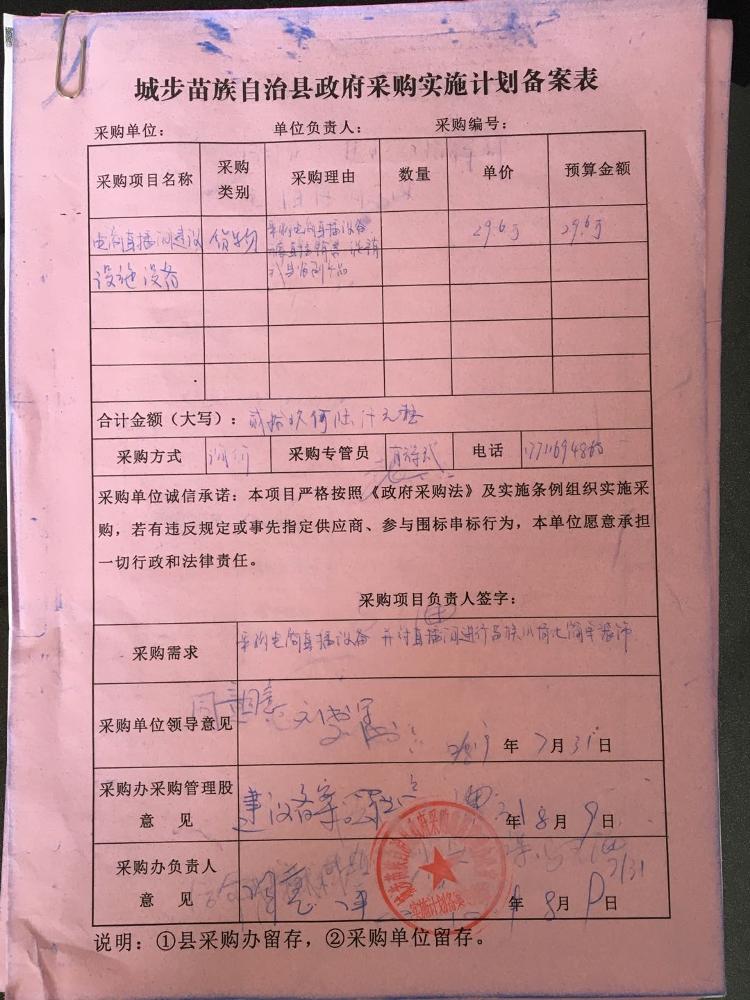 城步苗族自治县政府采购实施计划备案表
采购单位： 单位负责人： 采购编号：
采购项目名称 采购类别 采购理由 数量 单价 预算金额
电商直播间建设 货物 采购电商直播设备 29.6万 29.6万
设施设备
合计金额（大写）：贰拾玖万陆仟元整
采购方式 询价 采购专管员 电话
采购单位诚信承诺：本项目严格按照《政府采购法》及实施条例组织实施采
购，若有违反规定或事先指定供应商、参与围标串标行为，本单位愿意承担
一切行政和法律责任。
采购项目负责人签字：
采购需求 采购电商直播设备 并对直播间进行 装饰
采购单位领导意见 同意
年 7月31日
采购办采购管理股
意 见 建议备案。
年8月9日
采购办负责人
意 见 同意
年8月9日
实施计划备案
说明：①县采购办留存，②采购单位留存。